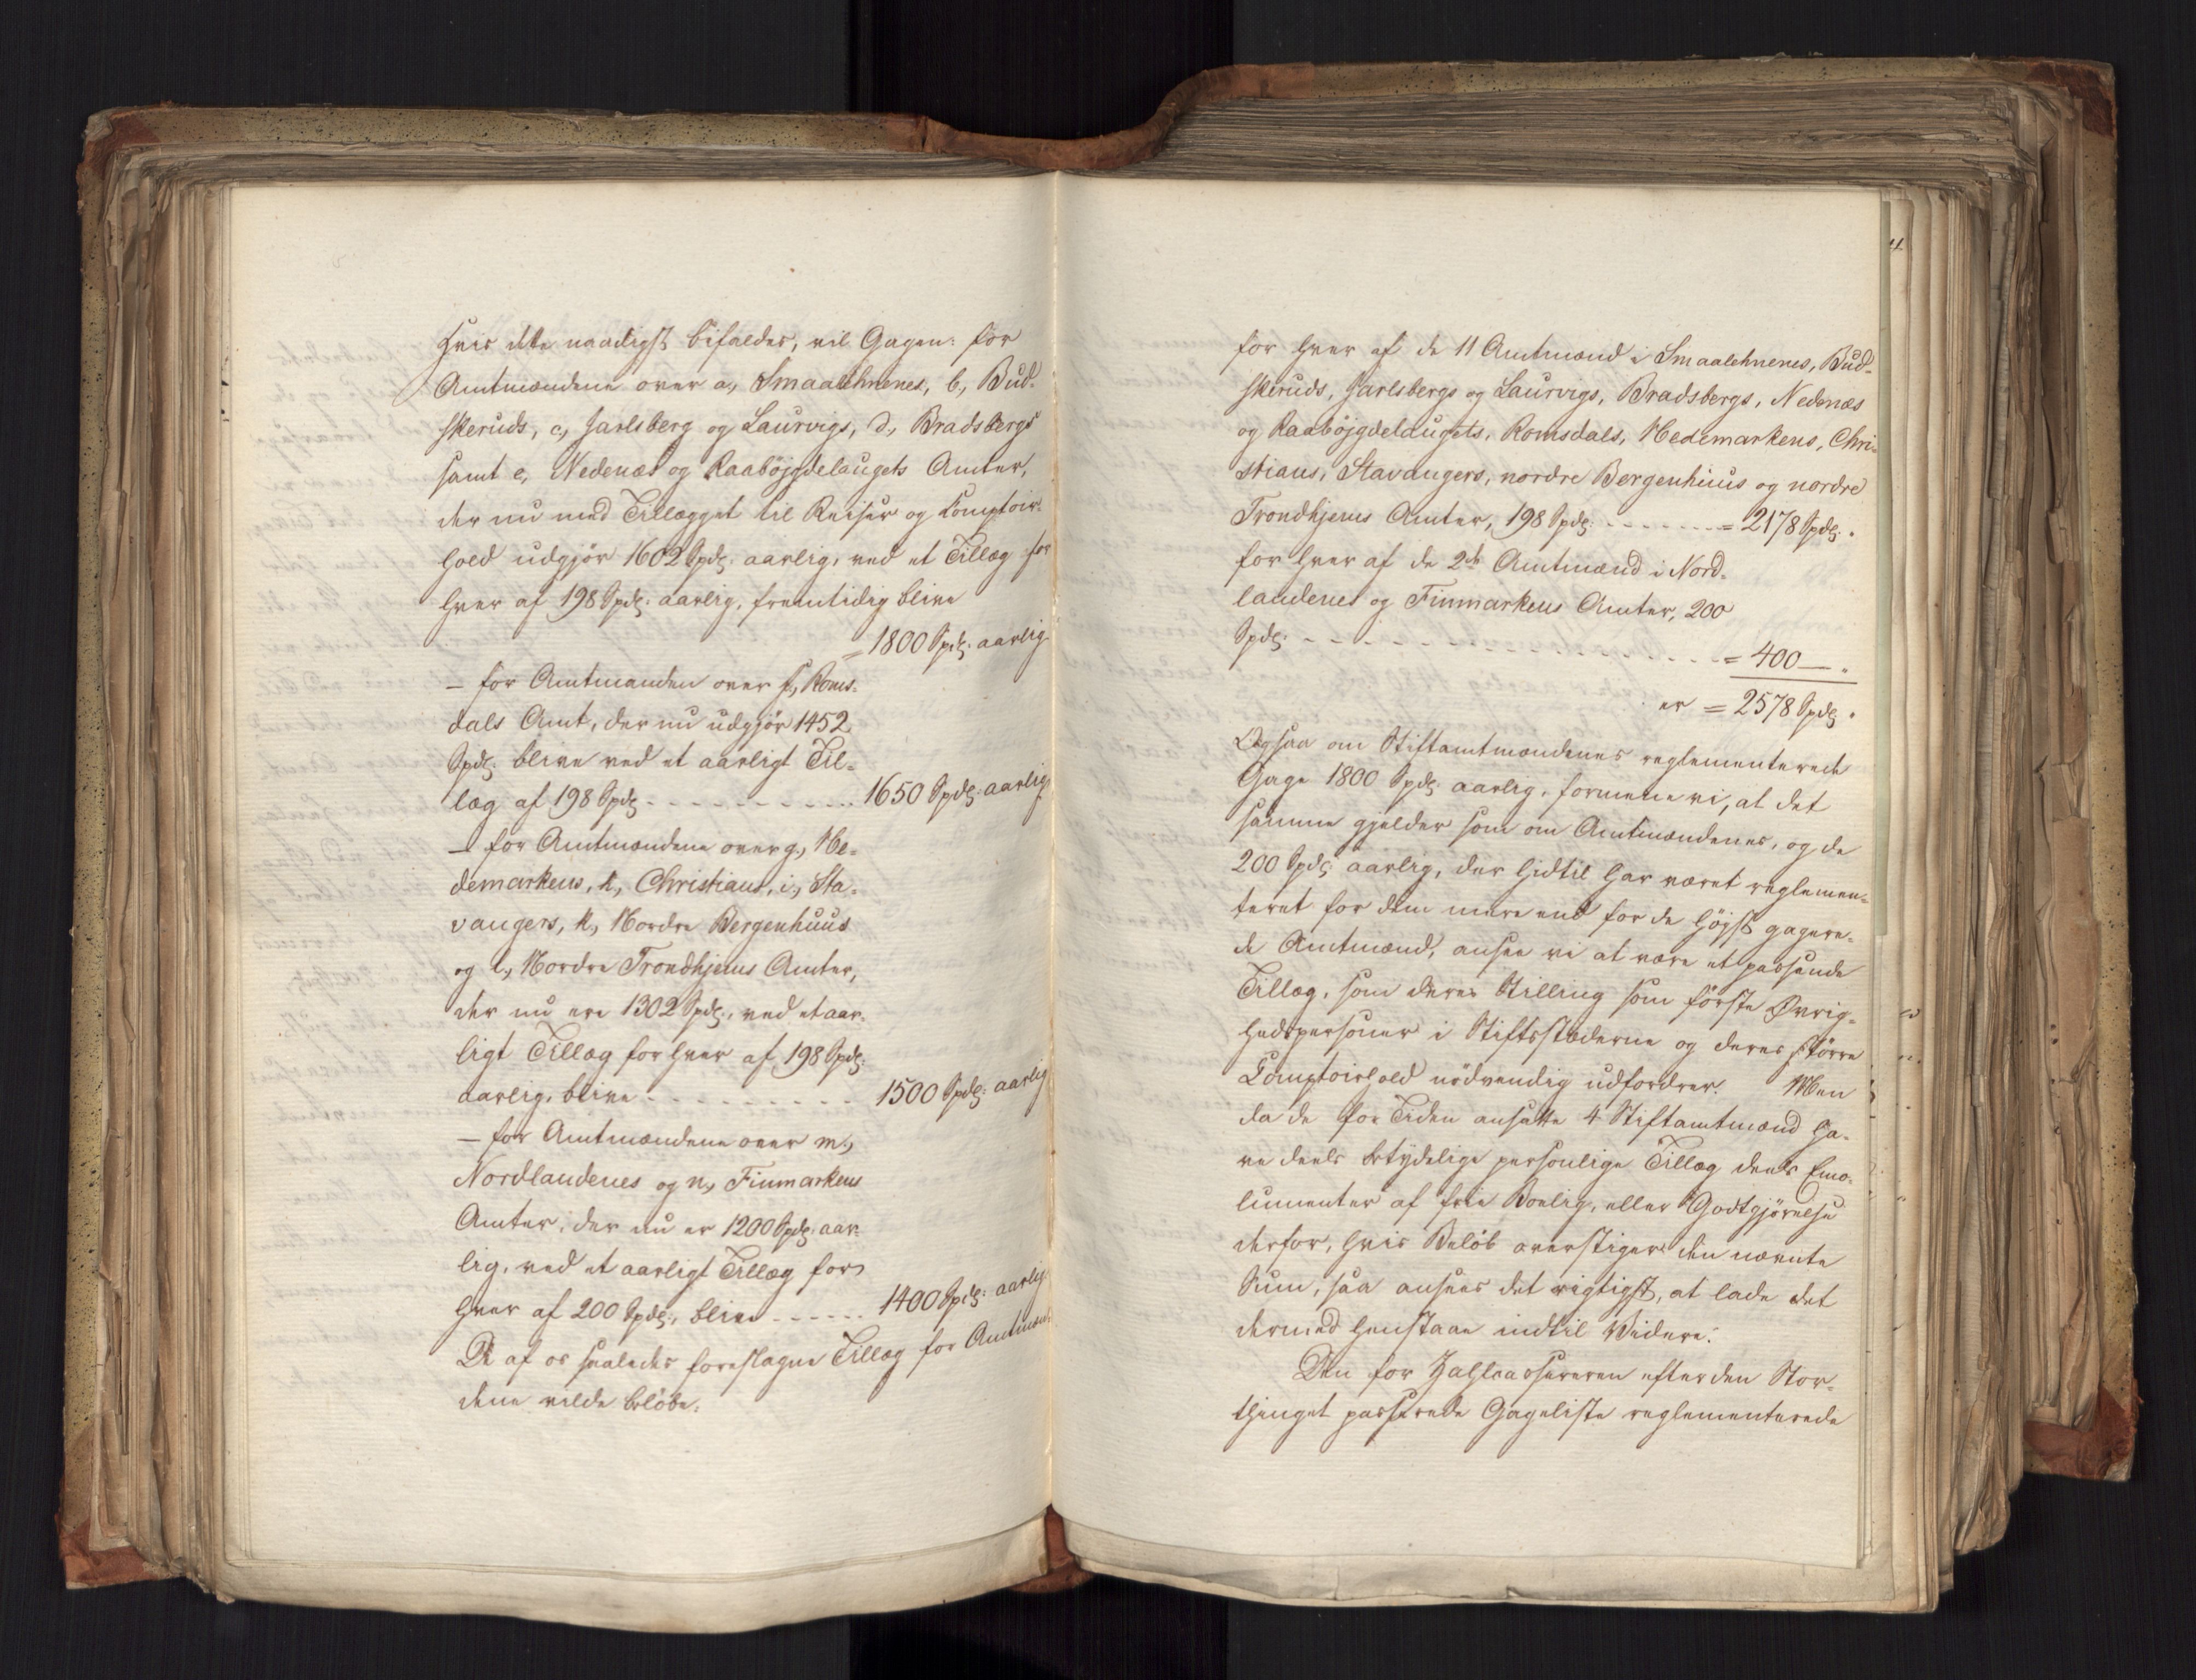 Hvis dette naadigst bifaldes, vil Gagen: for
Amtmændene over a, Smaalehnenes, b, Bud-
skeruds, c, Jarlsberg og Laurvigs, d, Bradsbergs
samt e, Nedenæs og Raabøjgdelaugets Amter,
der nu med Tillægget til Reiser og Comptoir-
hold udgjør 1602 Spdlr. aarlig, ved et Tillæg for
hver af 198 Spdlr. aarlig, fremtidig blive
= 1800 Spdlr. aarlig
– for Amtmanden over f, Roms-
dals Amt, der nu udgjør 1452
Spdlr. blive ved et aarligt Til-
læg af 198 Spdlr - - - - - - - - - - 1650 Spdlr. aarlig
– for Amtmændene over g, He-
demarkens, h, Christians, i, Sta-
vangers, k, Nordre Bergenhuus
og l, Nordre Trondhjems Amter,
der nu ere 1302 Spdlr., ved et aar-
ligt Tillæg for hver af 198 Spdlr.
aarlig, blive - - - - - - - - - 1500 Spdlr. aarlig
– for Amtmændene over m,
Nordlandenes og n, Finmarkens
Amter, der nu er 1200 Spdlr. aar-
lig, ved et aarligt Tillæg for
hver af 200 Spdlr., blive - - - - - - 1400 Spdlr. aarlig
De af os saaledes foreslagne Tillæg for Amtmæn-
dene vilde beløbe:
for hver af de 11 Amtmænd i Smaalehnenes, Bud-
skeruds, Jarlsbergs og Laurvigs, Bradsbergs, Nedenæs
og Raabøjgdelaugets, Romsdals, Hedemarkens, Chri-
stians, Stavangers, nordre Bergenhuus og nordre
Trondhjems Amter, 198 Spdlr. - - - - - - - = 2178 Spdlr. "
for hver af de 2de Amtmænd i Nord-
landenes og Finmarkens Amter, 200
Spdlr. - - - - - - - - - - - - - - - = 400 — "
er = 2578 Spdlr. "
Ogsaa om Stiftamtmændenes reglementerede
Gage 1800 Spdlr. aarlig, formene vi, at det
samme gjelder som om Amtmændenes, og de
200 Spdlr. aarlig, der hidtil har været reglemen-
teret for dem mere end for de højst gagere-
de Amtmænd, ansee vi at være et passende
Tillæg, som deres Stilling som første Øvrig-
hedspersoner i Stiftsstæderne og deres større
Comptoirhold nødvendig udfordrer. Men
da de for Tiden ansatte 4 Stiftamtmænd ha-
ve deels betydelige personlige Tillæg deels Emo-
lumenter af frie Boelig, eller Godtgjørelse
derfor, hvis Beløb overstiger den nævnte
Sum, saa ansees det rigtigst, at lade det
dermed henstaae indtil Videre.
Den for Zahlcassereren efter den Stor-
thinget passerede Gageliste reglementerede